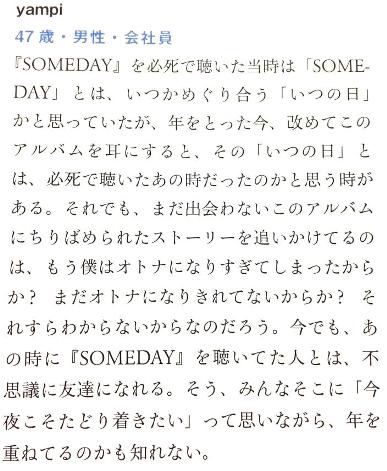 yampi
47歳・男性・会社員
『SOMEDAY』を必死で聴いた当時は「SOME-
DAY」とは、いつかめぐり合う「いつの日」
かと思っていたが、年をとった今、改めてこの
アルバムを耳にすると、その「いつの日」と
は、必死で聴いたあの時だったのかと思う時が
ある。それでも、まだ出会わないこのアルバム
にちりばめられたストーリーを追いかけてるの
は、もう僕はオトナになりすぎてしまったから
か？ まだオトナになりきれてないからか？ そ
れすらわからないからなのだろう。今でも、あ
の時に『SOMEDAY』を聴いてた人とは、不
思議に友達になれる。そう、みんなそこに「今
夜こそたどり着きたい」って思いながら、年を
重ねてるのかも知れない。